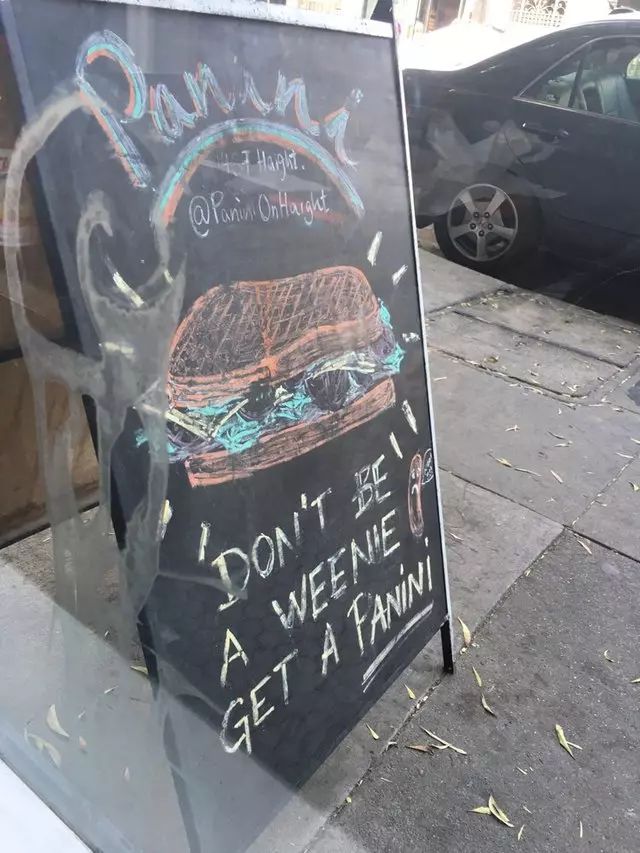 Panini
Haight.
@Panini OnHaight
"DON'T BE
A WEENIE
GET A PANINI